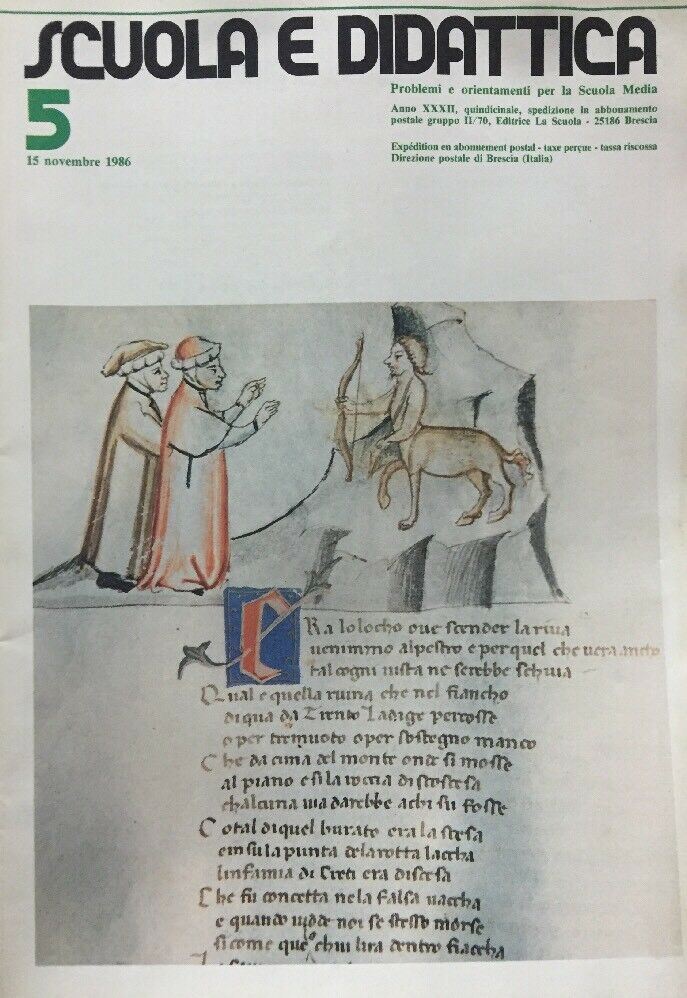 SCUOLA E DIDATTICA
5
15 novembre 1986
Problemi e orientamenti per la Scuola Media
Anno XXXII, quindicinale, spedizione in abbonamento
postale gruppo II/70, Editrice La Scuola - 25186 Brescia
Expédition en abonnement postal - taxe perçue - tassa riscossa
Direzione postale di Brescia (Italia)
ERa lo locho oue scender la riua
uenimmo alpestro e per quel che uera ancho
tal cogni uista ne serebbe schiua
Qual e quella ruina che nel fiancho
di qua da Trento ladige percosse
o per tremuoto o per sostegno manco
Che da cima del monte onde si mosse
al piano e si la roccia discoscesa
chalcuna uia darebbe a chi su fosse
Cotal di quel burato era la scesa
e in su la punta de la rotta laccha
linfamia di Creti era discesa
Che fu concetta ne la falsa uaccha
e quando uide noi se stesso morse
si come que chui lira dentro fiaccha